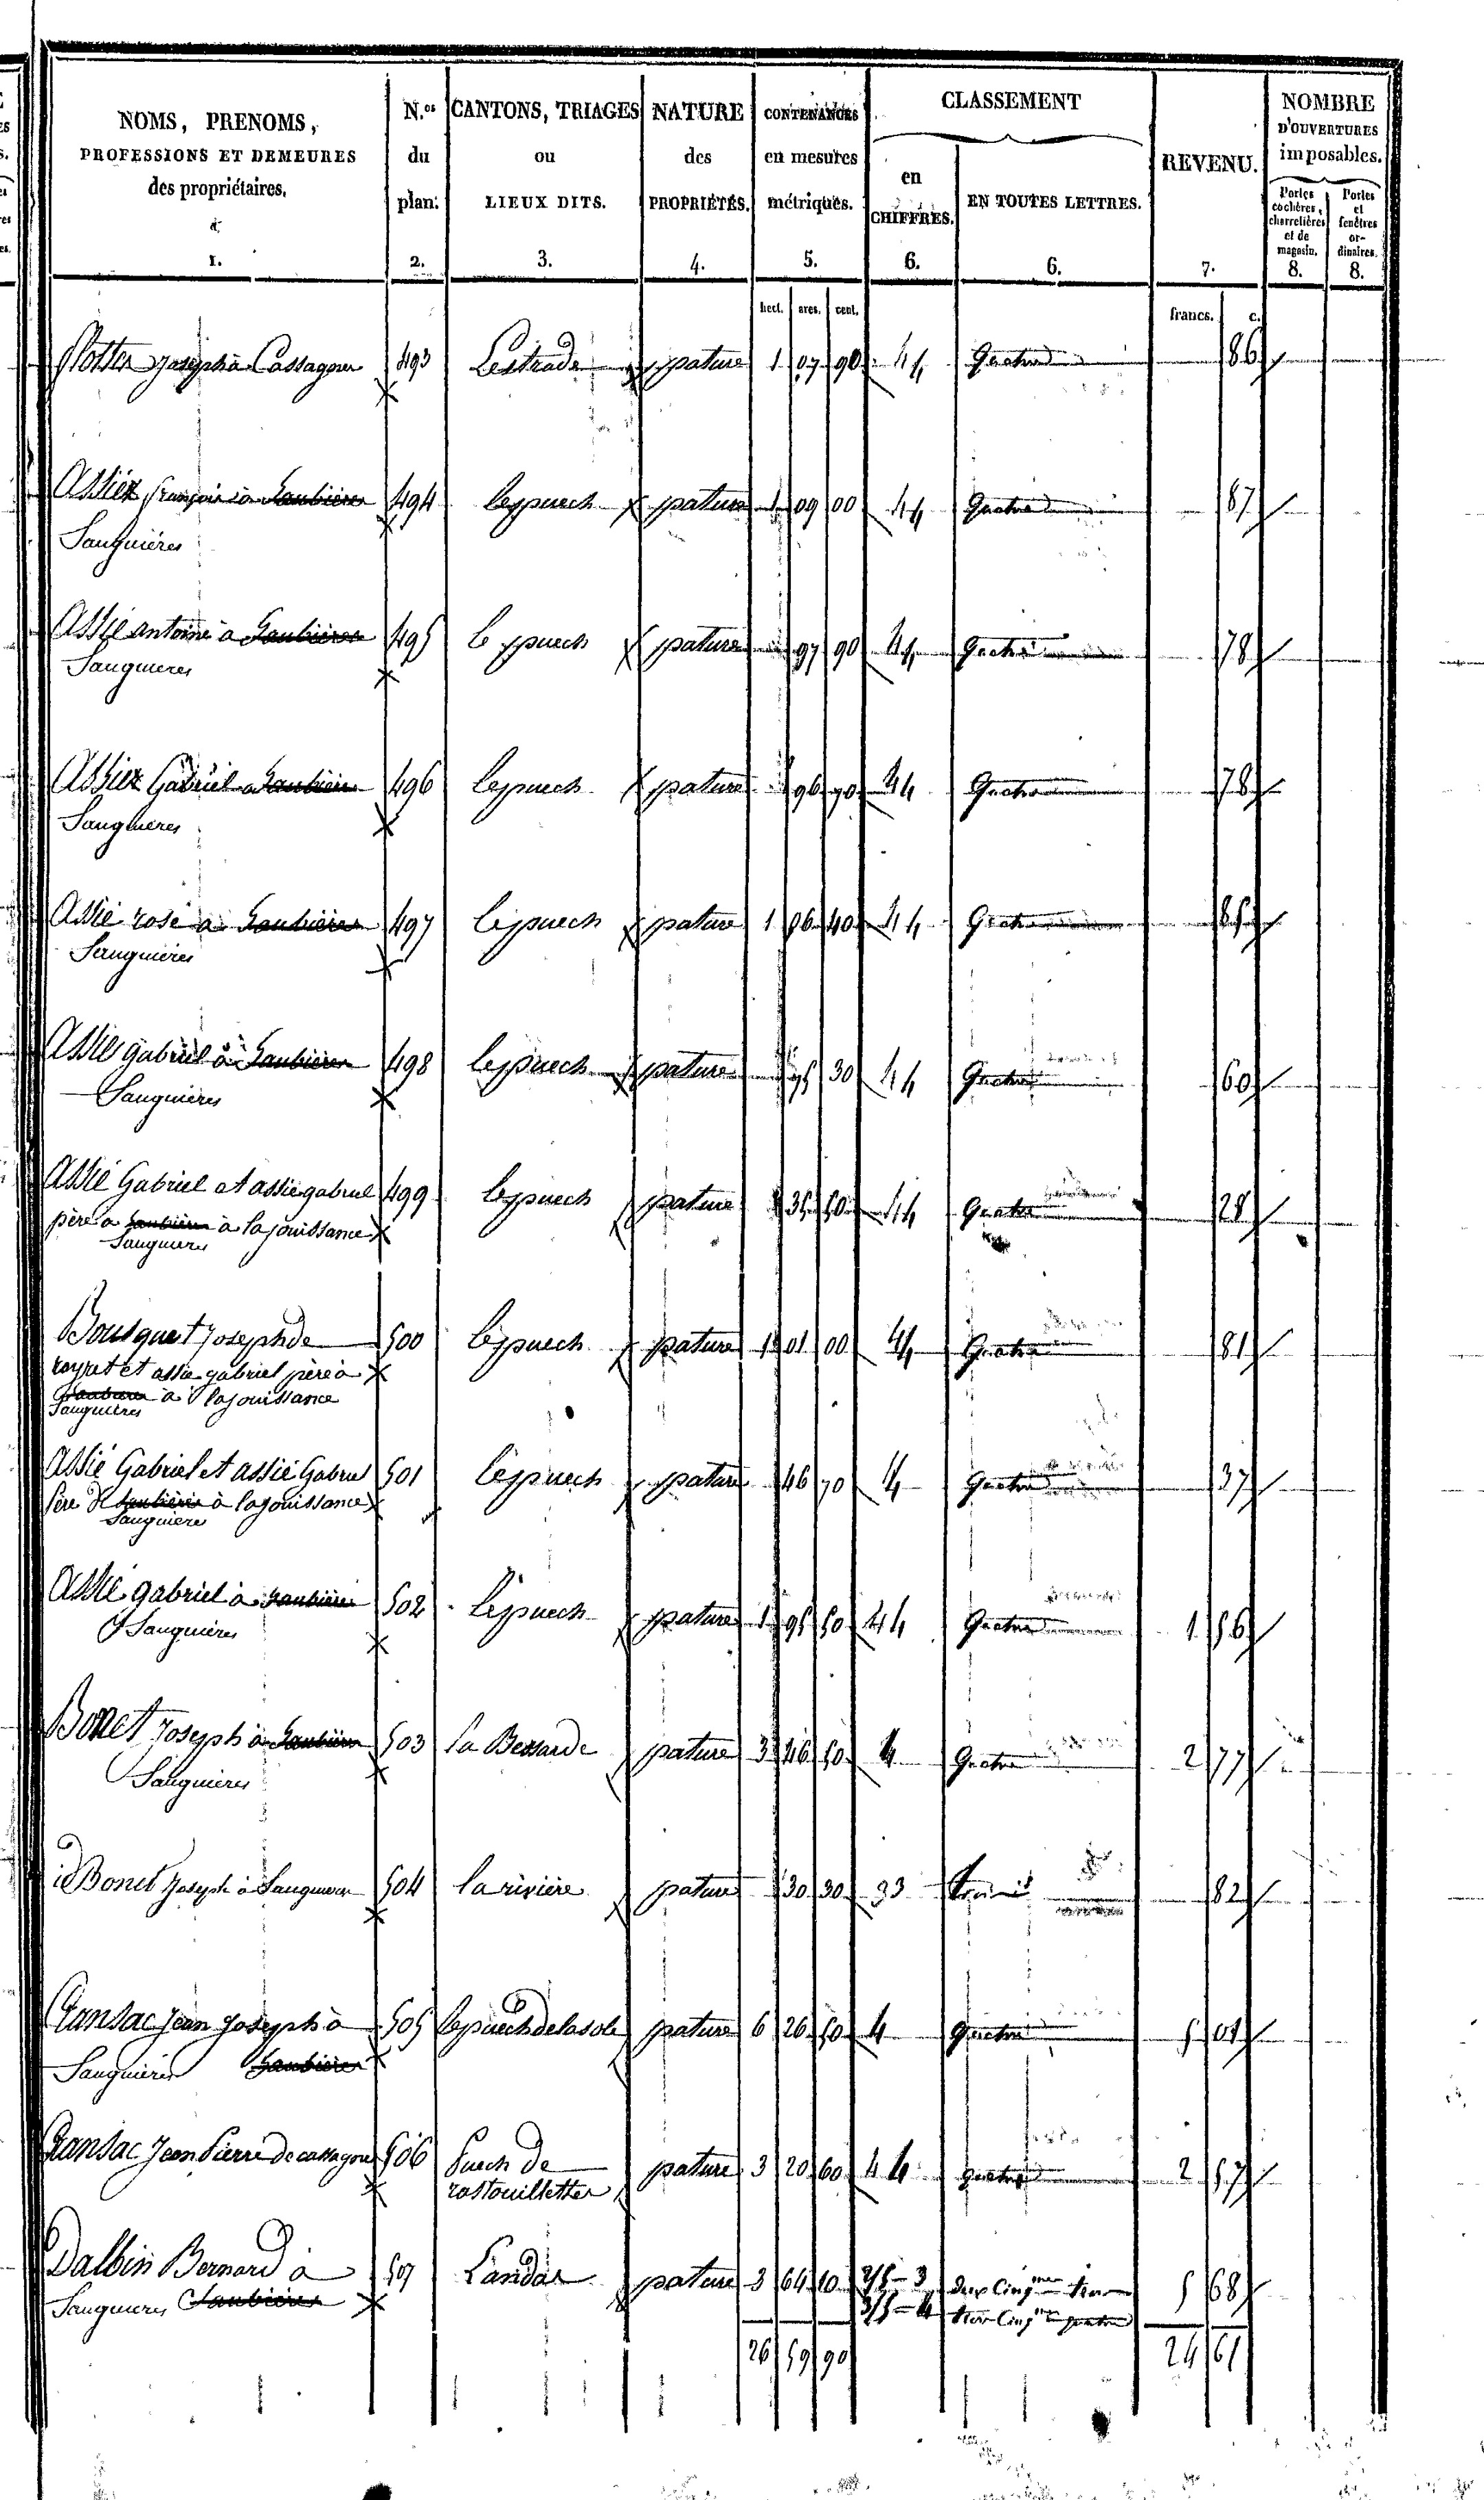 NOMS, PRENOMS, | N.os | CANTONS, TRIAGES | NATURE | CONTENANCES | CLASSEMENT | REVENU. | NOMBRE D'OUVERTURES imposables.
PROFESSIONS ET DEMEURES | du | ou | des | en mesures | en | EN TOUTES LETTRES. | Portes cochères, charretières et de magasin. | Portes et fenêtres ordinaires.
des propriétaires. | plan. | LIEUX DITS. | PROPRIÉTÉS. | métriques. | CHIFFRES.
1. | 2. | 3. | 4. | 5. | 6. | 6. | 7. | 8. | 8.
hect. | ares. | cent. | francs. | c.
Joseph à Cassagnes | 493 | Lestrade | pature | 1 | 07 | 90 | 4 | Quatre | 86
Assier françois à Saubières | 494 | le puech | pature | 1 | 09 | 00 | 4 | Quatre | 87
Sauguières
Assié antoine à Saubières | 495 | le puech | pature | 97 | 90 | 4 | Quatre | 78
Sauguieres
Assier Gabriel a Saubières | 496 | le puech | pature | 96 | 90 | 4 | Quatre | 78
Sauguieres
Assié rose a Saubières | 497 | le puech | pature | 1 | 06 | 40 | 4 | Quatre | 85
Sauguieres
Assié gabriel à Saubières | 498 | le puech | pature | 75 | 30 | 4 | Quatre | 60
Sauguieres
Assié Gabriel et assié gabriel | 499 | le puech | pature | 35 | 50 | 4 | Quatre | 28
père a Saubières à la jouissance
Sauguieres
Bousquet Joseph de | 500 | le puech | pature | 1 | 01 | 00 | 4 | Quatre | 81
royret et assié gabriel père à
Saubieres à la jouissance
Sauguieres
Assié Gabriel et assié Gabriel | 501 | le puech | pature | 46 | 70 | 4 | Quatre | 37
père de Saubières à la jouissance
Sauguiere
Assié gabriel à Saubières | 502 | le puech | pature | 1 | 95 | 50 | 4 | Quatre | 1 | 56
Sauguières
Bonet Joseph à Saubières | 503 | la Bessarde | pature | 3 | 46 | 50 | 4 | Quatre | 2 | 77
Sauguieres
id Bonet Joseph à Sauguieres | 504 | la rivière | pature | 30 | 30 | 3 | trois | 82
Cransac Jean Joseph à | 505 | le puech de la sole | pature | 6 | 26 | 50 | 4 | Quatre | 5 | 01
Sauguieres Saubières
Cransac Jean Pierre de cassagnes | 506 | Puech de | pature | 3 | 20 | 60 | 4 | quatre | 2 | 57
rastouilletter
Dalbin Bernard à | 507 | Landas | pature | 3 | 64 | 10 | 2/5 - 3 | deux Cinq.mes trois | 5 | 68
Sauguieres Saubières | 3/5 - 4 | trois Cinq.mes quatre
26 | 59 | 90 | 24 | 61